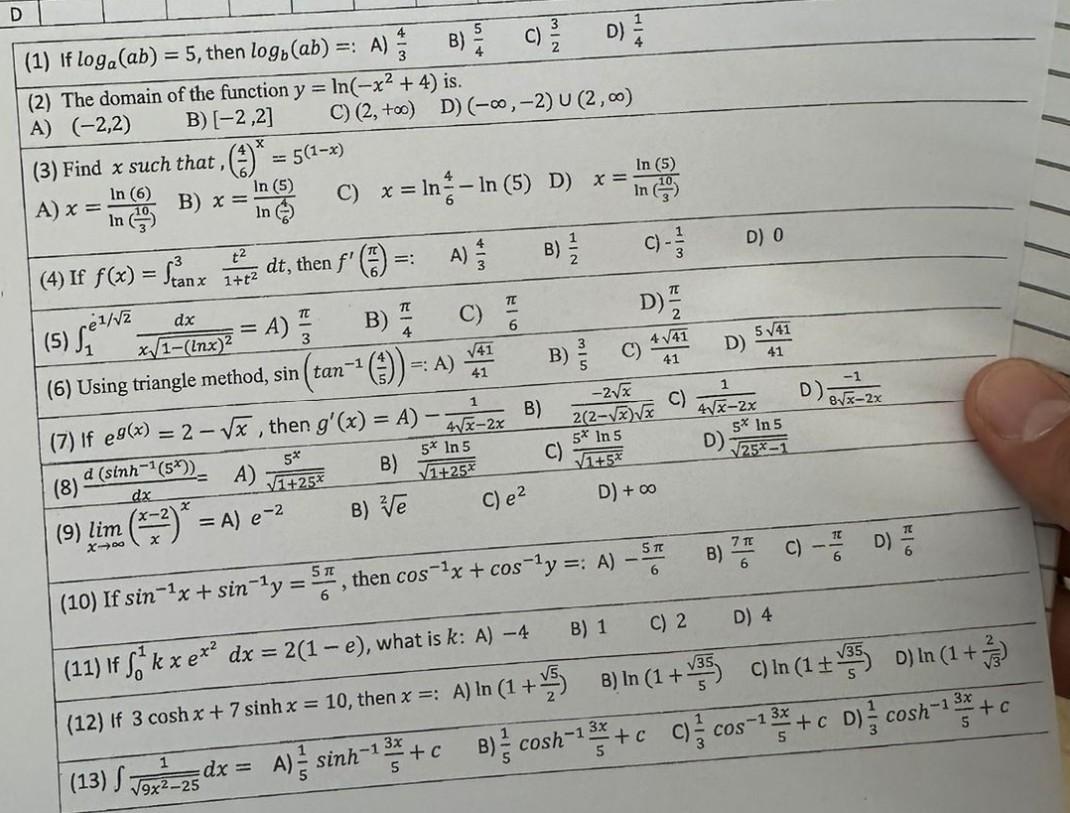 D
(1) If logₐ(ab) = 5, then log_b(ab) =: A) 4/3 B) 5/4 C) 3/2 D) 1/4
(2) The domain of the function y = ln(−x² + 4) is.
A) (−2,2) B) [−2 ,2] C) (2, +∞) D) (−∞ , −2) ∪ (2 , ∞)
(3) Find x such that , (4/6)^x = 5^(1−x)
A) x = ln (6)/ln (10/3) B) x = ln (5)/ln (4/6) C) x = ln 4/6 − ln (5) D) x = ln (5)/ln (10/3)
(4) If f(x) = ∫_{tan x}^{3} t²/(1+t²) dt, then f′(π/6) =: A) 4/3 B) 1/2 C) -1/3 D) 0
(5) ∫_1^{e^{1/√2}} dx/(x√(1−(lnx)²)) = A) π/3 B) π/4 C) π/6 D) π/2
(6) Using triangle method, sin (tan⁻¹ (4/5)) =: A) √41/41 B) 3/5 C) 4√41/41 D) 5√41/41
(7) If e^{g(x)} = 2 − √x , then g′(x) = A) − 1/(4√x−2x) B) −2√x/(2(2−√x)√x) C) 1/(4√x−2x) D) −1/(8√x−2x)
(8) d (sinh⁻¹(5ˣ))/dx = A) 5ˣ/√(1+25ˣ) B) 5ˣ ln 5/√(1+25ˣ) C) 5ˣ ln 5/√(1+5ˣ) D) 5ˣ ln 5/√(25ˣ−1)
(9) lim_{x→∞} ((x−2)/x)^x = A) e⁻² B) ²√e C) e² D) + ∞
(10) If sin⁻¹x + sin⁻¹y = 5π/6 , then cos⁻¹x + cos⁻¹y =: A) − 5π/6 B) 7π/6 C) − π/6 D) π/6
(11) If ∫_0^1 k x e^{x²} dx = 2(1 − e), what is k: A) −4 B) 1 C) 2 D) 4
(12) If 3 cosh x + 7 sinh x = 10, then x =: A) ln (1 + √5/2) B) ln (1 + √35/5) C) ln (1 ± √35/5) D) ln (1 + 2/√3)
(13) ∫ 1/√(9x²−25) dx = A) 1/5 sinh⁻¹ 3x/5 + c B) 1/5 cosh⁻¹ 3x/5 + c C) 1/3 cos⁻¹ 3x/5 + c D) 1/3 cosh⁻¹ 3x/5 + c